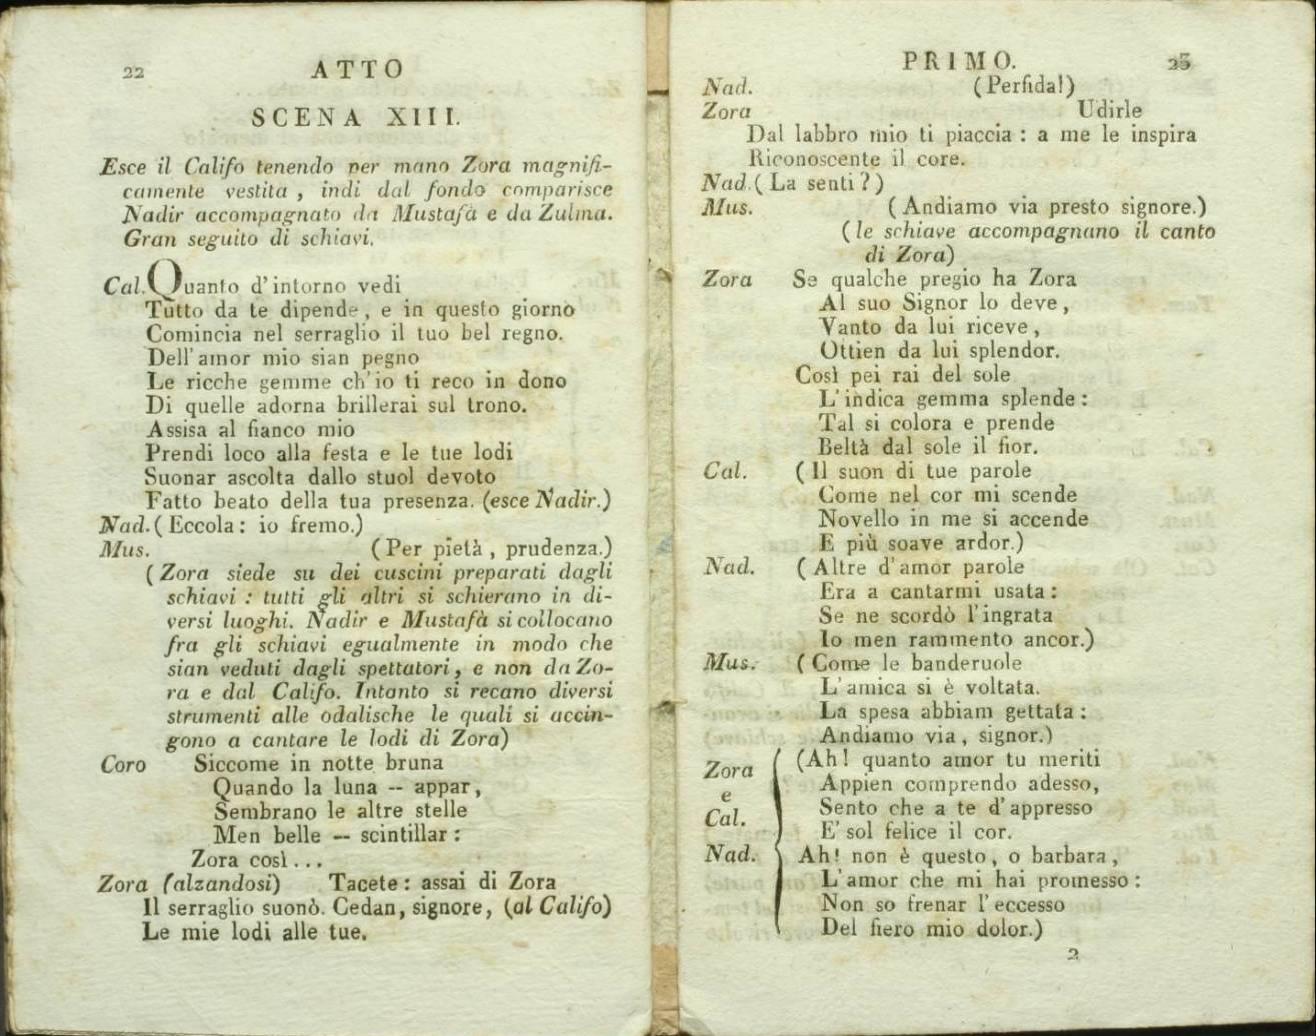 22
ATTO
SCENA XIII.
Esce il Califo tenendo per mano Zora magnifi-
camente vestita , indi dal fondo comparisce
Nadir accompagnato da Mustafà e da Zulma.
Gran seguito di schiavi.
Cal. Quanto d'intorno vedi
Tutto da te dipende, e in questo giorno
Comincia nel serraglio il tuo bel regno.
Dell'amor mio sian pegno
Le ricche gemme ch'io ti reco in dono
Di quelle adorna brillerai sul trono.
Assisa al fianco mio
Prendi loco alla festa e le tue lodi
Suonar ascolta dallo stuol devoto
Fatto beato della tua presenza. (esce Nadir.)
Nad. ( Eccola : io fremo.)
Mus. ( Per pietà , prudenza.)
( Zora siede su dei cuscini preparati dagli
schiavi : tutti gli altri si schierano in di-
versi luoghi. Nadir e Mustafà si collocano
fra gli schiavi egualmente in modo che
sian veduti dagli spettatori, e non da Zo-
ra e dal Califo. Intanto si recano diversi
strumenti alle odalische le quali si accin-
gono a cantare le lodi di Zora)
Coro Siccome in notte bruna
Quando la luna -- appar,
Sembrano le altre stelle
Men belle -- scintillar :
Zora così...
Zora (alzandosi) Tacete : assai di Zora
Il serraglio suonò. Cedan, signore, (al Califo)
Le mie lodi alle tue.
PRIMO.
23
Nad. ( Perfida!)
Zora Udirle
Dal labbro mio ti piaccia : a me le inspira
Riconoscente il core.
Nad. ( La senti ? )
Mus. ( Andiamo via presto signore.)
( le schiave accompagnano il canto
di Zora)
Zora Se qualche pregio ha Zora
Al suo Signor lo deve ,
Vanto da lui riceve ,
Ottien da lui splendor.
Così pei rai del sole
L'indica gemma splende :
Tal si colora e prende
Beltà dal sole il fior.
Cal. ( Il suon di tue parole
Come nel cor mi scende
Novello in me si accende
E più soave ardor.)
Nad. ( Altre d'amor parole
Era a cantarmi usata :
Se ne scordò l'ingrata
Io men rammento ancor.)
Mus. ( Come le banderuole
L'amica si è voltata.
La spesa abbiam gettata :
Andiamo via , signor.)
Zora e Cal. (Ah! quanto amor tu meriti
Appien comprendo adesso,
Sento che a te d'appresso
E' sol felice il cor.
Nad. Ah! non è questo , o barbara ,
L'amor che mi hai promesso :
Non so frenar l'eccesso
Del fiero mio dolor.)
2